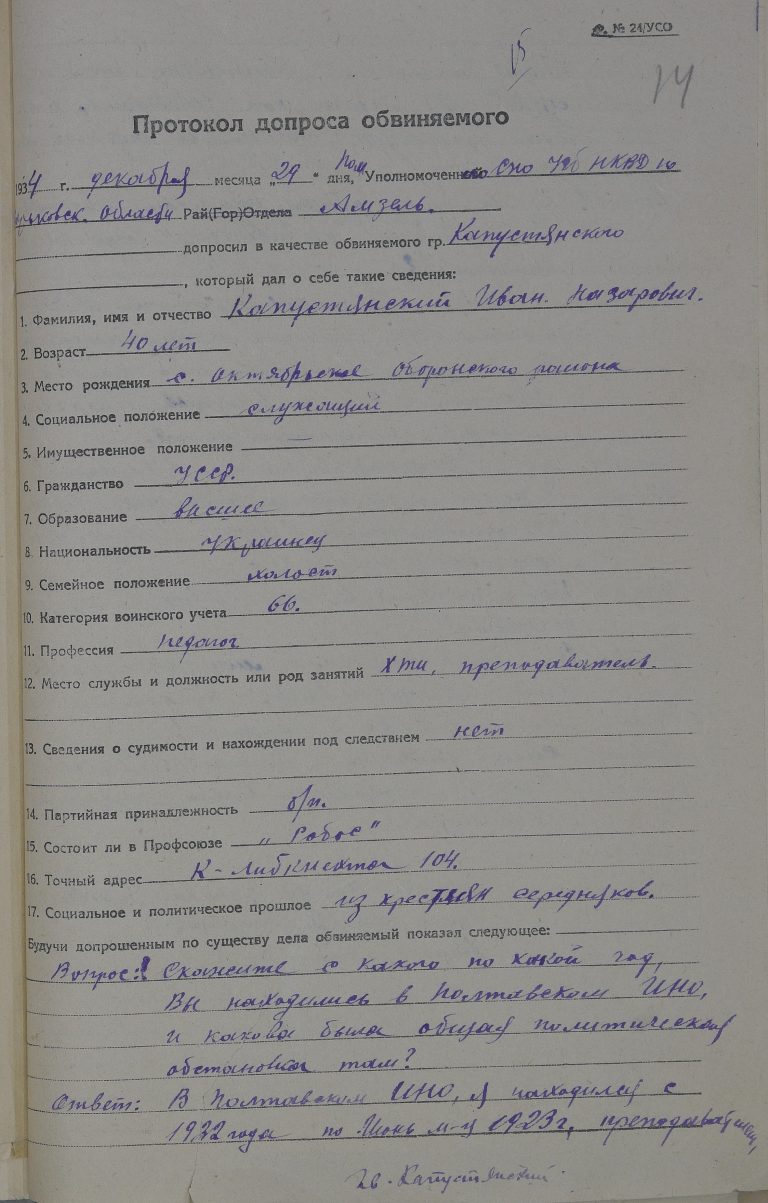 Ф. № 24/УСО
15
14
Протокол допроса обвиняемого
1934 г. декабря месяца „29“ дня, Пом. Уполномоченного СПО УГБ НКВД по
Харьковск. Области Рай(Гор)Отдела Амзель.
допросил в качестве обвиняемого гр. Капустянского
, который дал о себе такие сведения:
1. Фамилия, имя и отчество Капустянский Иван Назарович.
2. Возраст 40 лет
3. Место рождения с. Октябрьское Оборонского района
4. Социальное положение служащий
5. Имущественное положение —
6. Гражданство УССР.
7. Образование высшее
8. Национальность Украинец
9. Семейное положение холост
10. Категория воинского учета 66.
11. Профессия педагог
12. Место службы и должность или род занятий ХТИ, преподаватель.
13. Сведения о судимости и нахождении под следствием нет
14. Партийная принадлежность б/п.
15. Состоит ли в Профсоюзе „Робос"
16. Точный адрес К-Либкнехта 104.
17. Социальное и политическое прошлое из хрестян середняков.
Будучи допрошенным по существу дела обвиняемый показал следующее:
Вопрос: Скажите с какого по какой год,
Вы находились в Полтавском ИНО,
и какова была общая политическая
обстановка там?
Ответ: В Полтавском ИНО, я находился с
1932 года по Июнь м-ц 1923 г, преподавателем,
Ив. Капустянский.